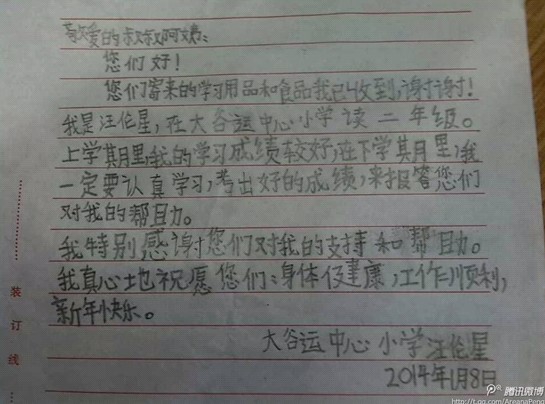 敬爱的叔叔阿姨:
您们好!
您们寄来的学习用品和食品我已收到,谢谢!
我是汪伦星,在大谷运中心小学读二年级。
上学期里我的学习成绩较好,在下学期里,我
一定要认真学习,考出好的成绩,来报答您们
对我的帮助。
我特别感谢您们对我的支持和帮助。
我真心地祝愿您们:身体健康,工作顺利,
新年快乐。
大谷运中心小学汪伦星
2014年1月8日
装订线
腾讯微博
http://t.qq.com/AreanaPeng